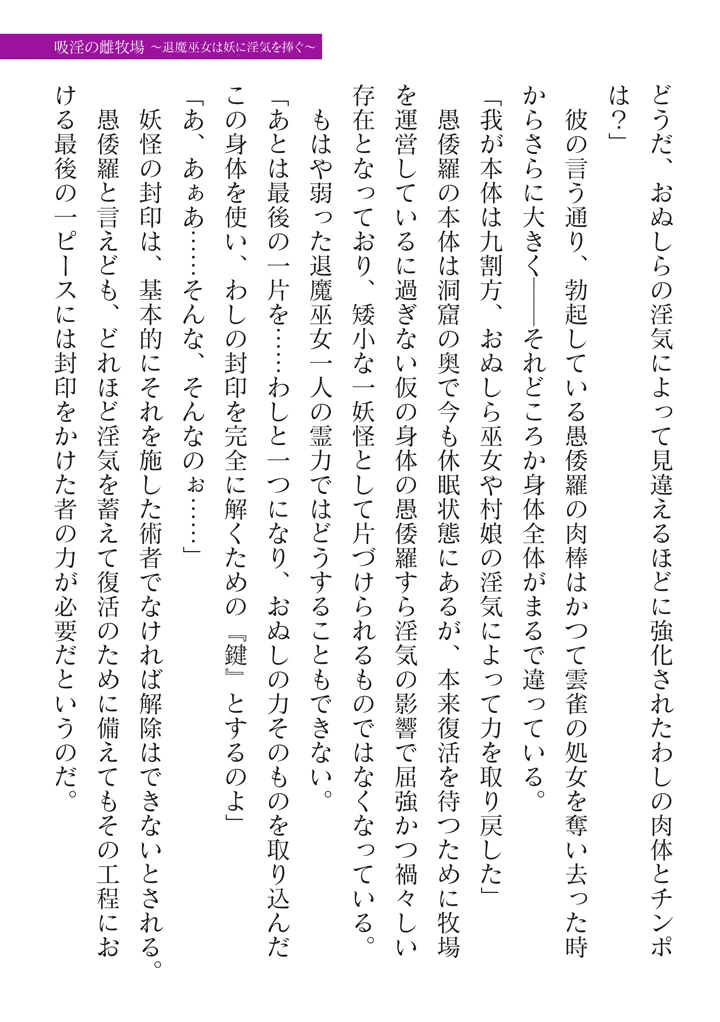 吸淫の雌牧場 ～退魔巫女は妖に淫気を捧ぐ～
どうだ、おぬしらの淫気によって見違えるほどに強化されたわしの肉体とチンポ
は？」
彼の言う通り、勃起している愚倭羅の肉棒はかつて雲雀の処女を奪い去った時
からさらに大きく――それどころか身体全体がまるで違っている。
「我が本体は九割方、おぬしら巫女や村娘の淫気によって力を取り戻した」
愚倭羅の本体は洞窟の奥で今も休眠状態にあるが、本来復活を待つために牧場
を運営しているに過ぎない仮の身体の愚倭羅すら淫気の影響で屈強かつ禍々しい
存在となっており、矮小な一妖怪として片づけられるものではなくなっている。
もはや弱った退魔巫女一人の霊力ではどうすることもできない。
「あとは最後の一片を……わしと一つになり、おぬしの力そのものを取り込んだ
この身体を使い、わしの封印を完全に解くための『鍵』とするのよ」
「あ、あぁあ……そんな、そんなのぉ……」
妖怪の封印は、基本的にそれを施した術者でなければ解除はできないとされる。
愚倭羅と言えども、どれほど淫気を蓄えて復活のために備えてもその工程にお
ける最後の一ピースには封印をかけた者の力が必要だというのだ。